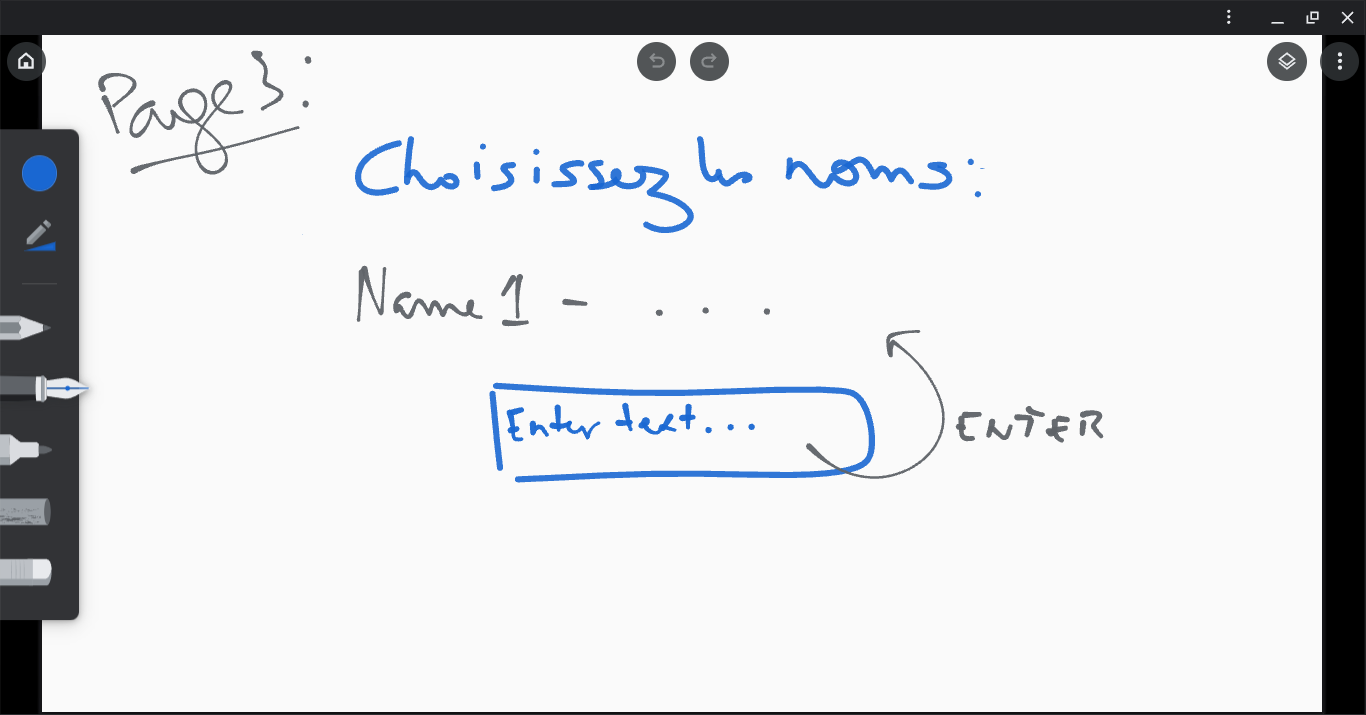 Page 3:
Choisissez les noms:
Name 1 - . . .
Enter text...
ENTER